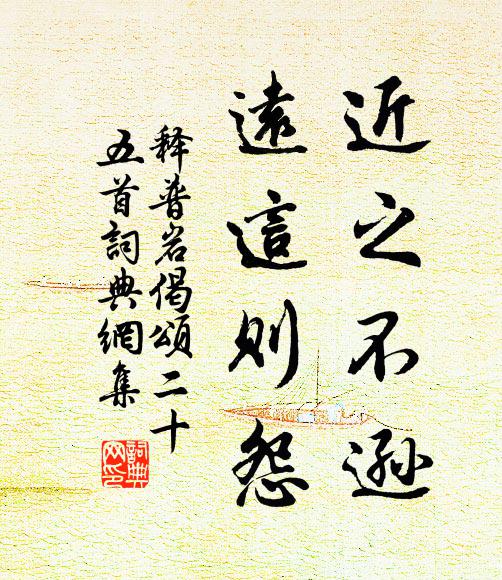 近之不遜
遠這則怨
释普岩偈頌二十
五首詞典網集
詞典網印